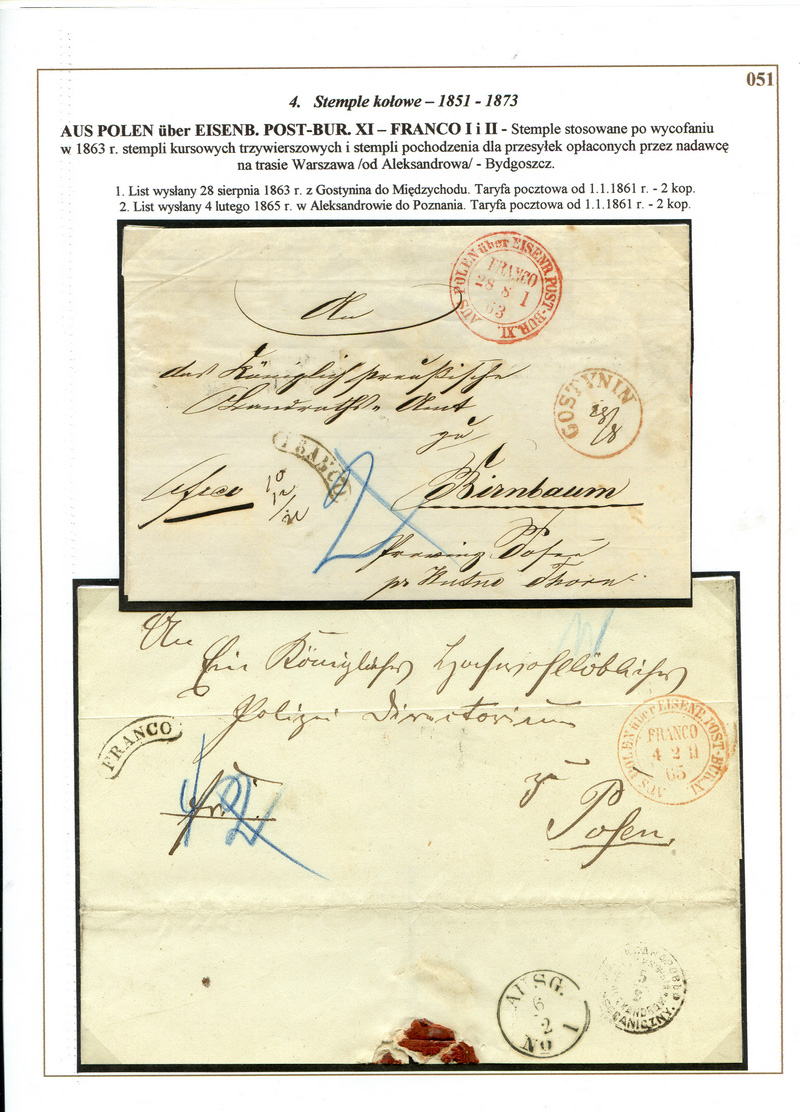 051
4. Stemple kołowe – 1851 - 1873
AUS POLEN über EISENB. POST-BUR. XI – FRANCO I i II - Stemple stosowane po wycofaniu
w 1863 r. stempli kursowych trzywierszowych i stempli pochodzenia dla przesyłek opłaconych przez nadawcę
na trasie Warszawa /od Aleksandrowa/ - Bydgoszcz.
1. List wysłany 28 sierpnia 1863 r. z Gostynina do Międzychodu. Taryfa pocztowa od 1.1.1861 r. - 2 kop.
2. List wysłany 4 lutego 1865 r. w Aleksandrowie do Poznania. Taryfa pocztowa od 1.1.1861 r. - 2 kop.
AUS POLEN über EISENB. POST-BUR. XI.
FRANCO
28 8 I
63
An
das Königlich preußische
Landraths-Amt
zu
GOSTYNIN
28/8
FRANCO
2
Birnbaum
Provinz Posen
pr Kutno Thorn
An
Ein Königliches Hochwohllöbliches
Polizei Directorium
FRANCO
AUS POLEN über EISENB. POST-BUR. XI.
FRANCO
4 2 II
65
zu
Posen.
2
AUSG.
6
2
No 1